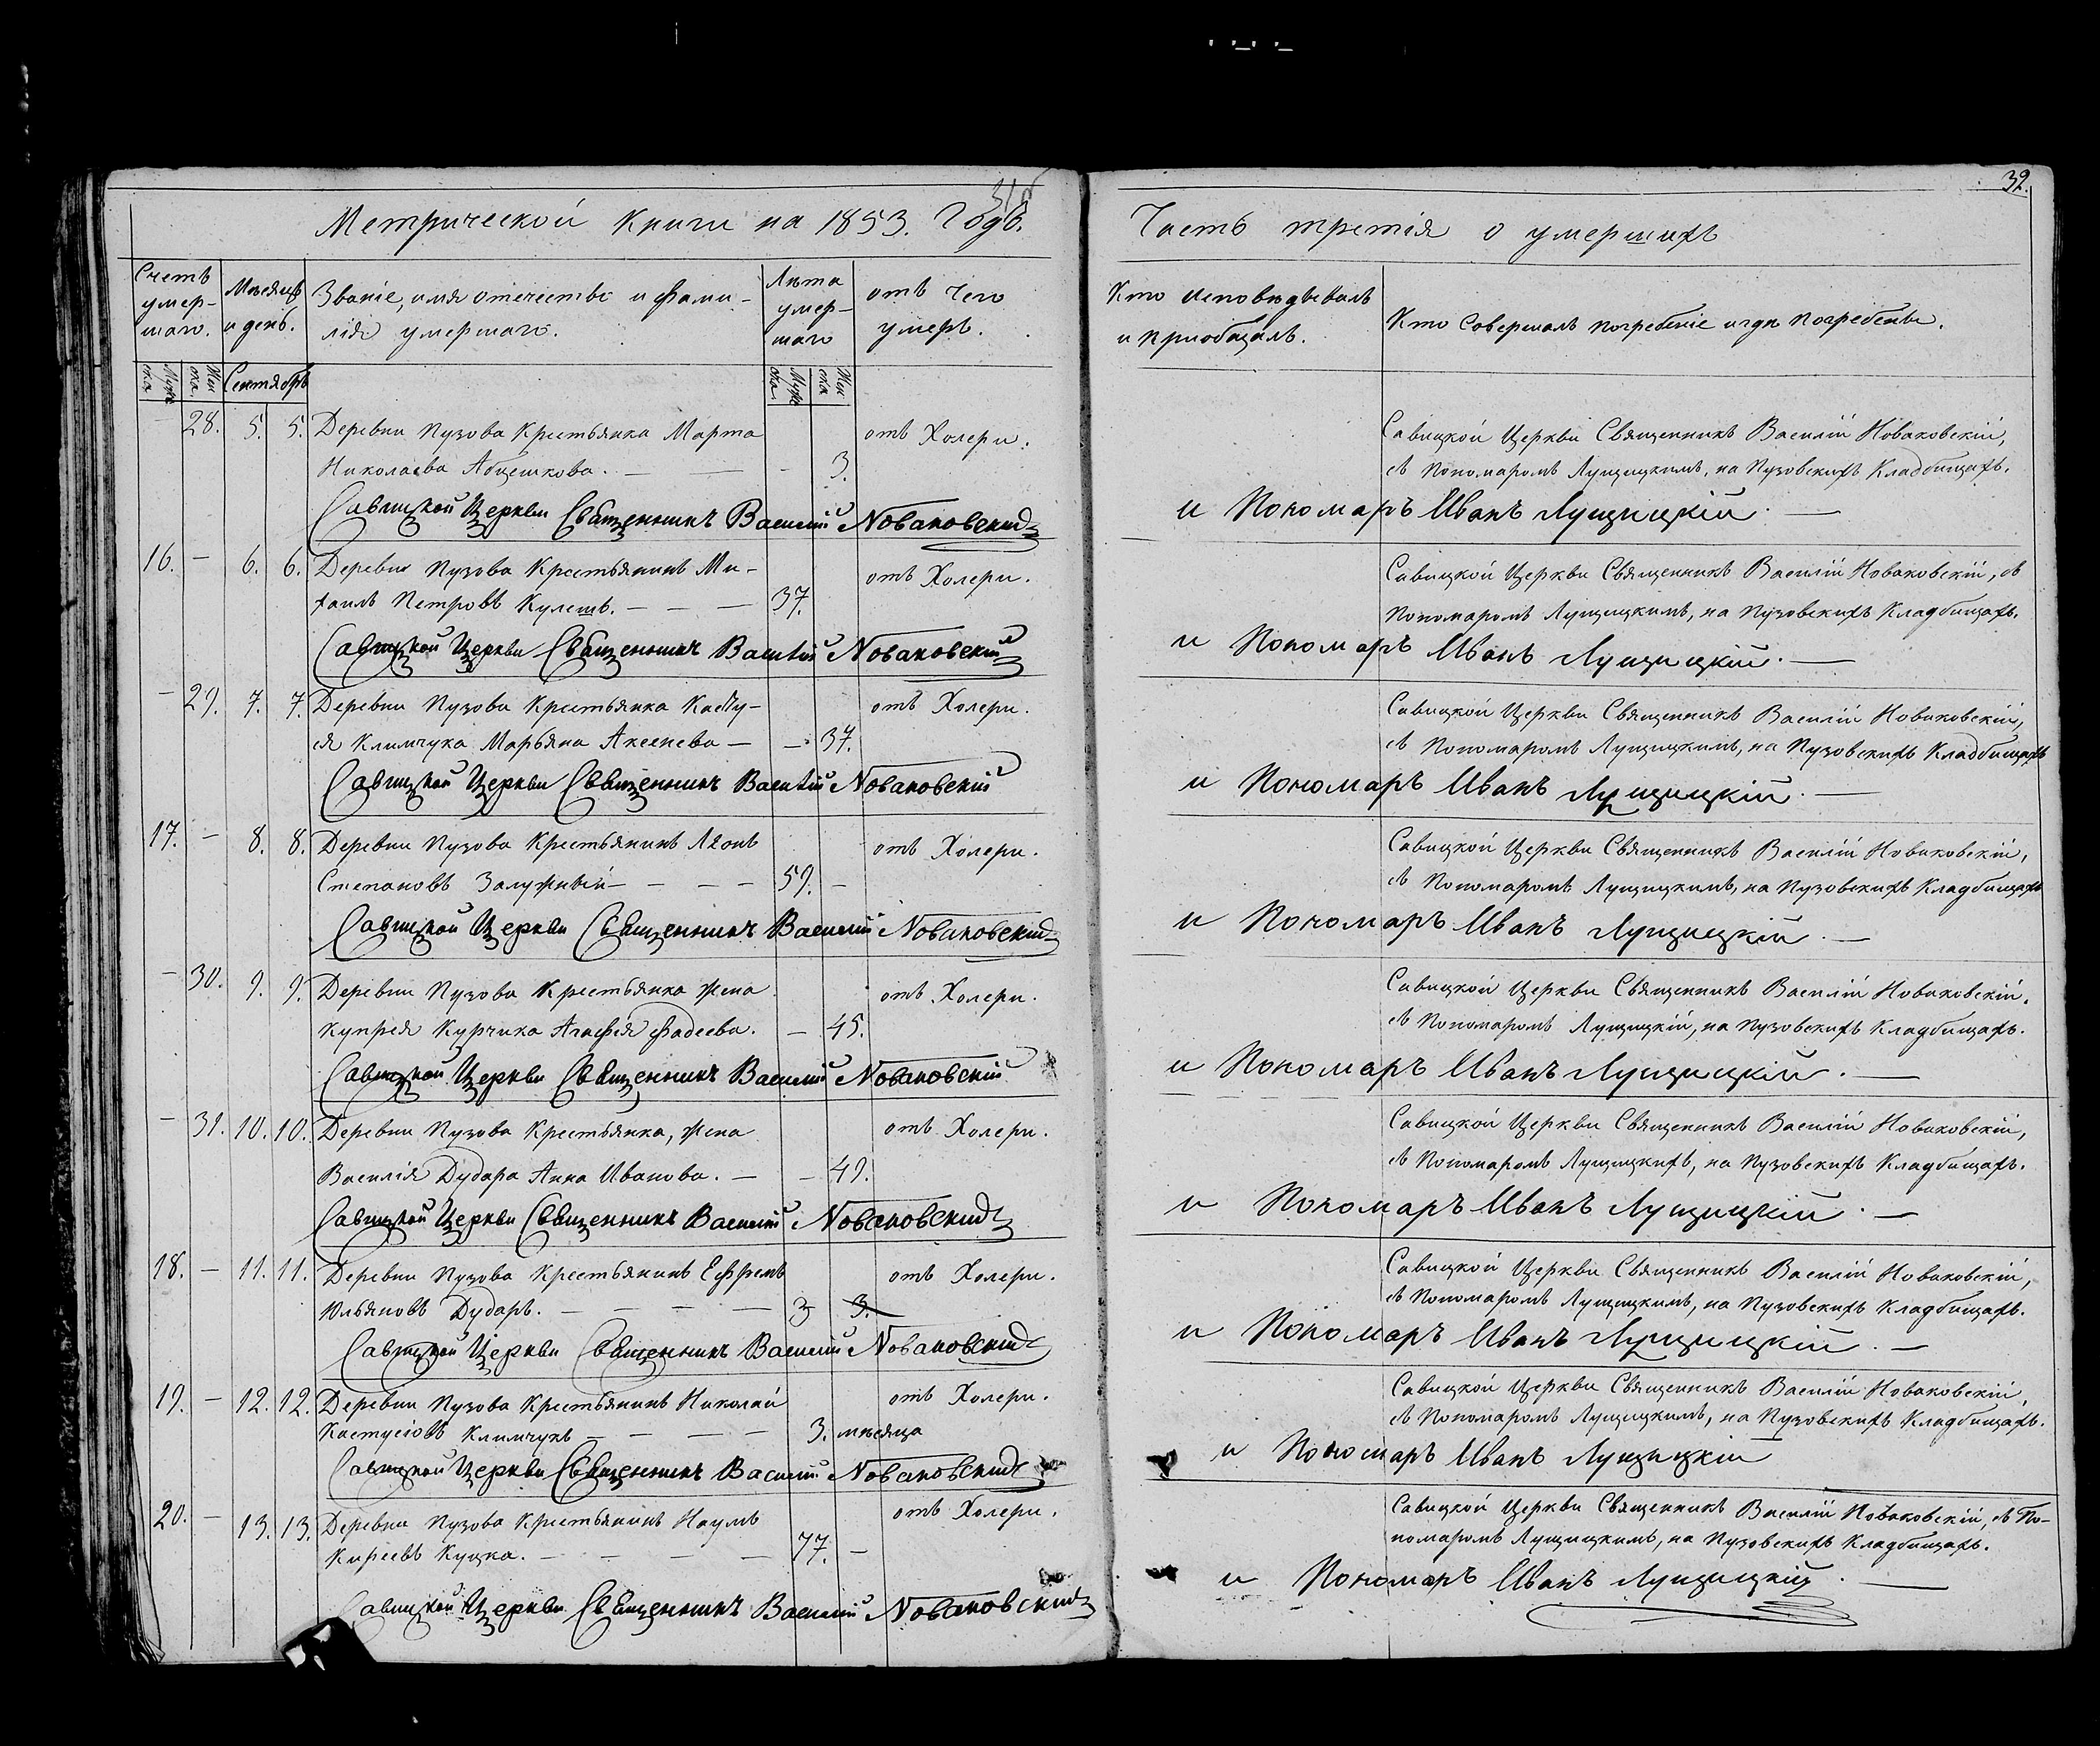 Метрической Книги на 1853. Годъ.
Счетъ умер-шаго.
Мѣсяцъ и день.
Званіе, имя отечество и фами-
лія умершаго.
Лѣта умер-шаго
отъ чего умеръ.
Муже ска
Жен ска
Сентябрь
Муже ска
Жен ска
28. 5. 5. Деревни Пузова Крестьянка Марта отъ Холери.
Николаева Абцешкова. — — - 3.
Савицкой Церкви Священникъ Василій Новаковскій
16. — 6. 6. Деревни Пузова Крестьянинъ Ми- отъ Холери.
хаилъ Петровъ Кулешъ. — — — 37.
Савицкой Церкви Священникъ Василій Новаковскій
— 29. 7. 7. Деревни Пузова Крестьянка Касту- отъ Холери.
ся Климчука Марьяна Аксенева — — 37.
Савицкой Церкви Священникъ Василій Новаковскій
17. — 8. 8. Деревни Пузова Крестьянинъ Леонъ отъ Холери.
Степановъ Залужный — — — — 59. —
Савицкой Церкви Священникъ Василій Новаковскій
— 30. 9. 9. Деревни Пузова Крестьянка жена отъ Холери.
Купрея Курчика Агафія Фадеева. — 45.
Савицкой Церкви Священникъ Василій Новаковскій
— 31. 10. 10. Деревни Пузова Крестьянка, жена отъ Холери.
Василія Дударa Анна Иванова. — — 49.
Савицкой Церкви Священникъ Василій Новаковскій
18. — 11. 11. Деревни Пузова Крестьянинъ Ефремъ отъ Холери.
Юльяновъ Дударъ. — — — — 3 3.
Савицкой Церкви Священникъ Василій Новаковскій
19. — 12. 12. Деревни Пузова Крестьянинъ Николай отъ Холери.
Кастусіовъ Климчукъ — — — — 3. мѣсяца
Савицкой Церкви Священникъ Василій Новаковскій
20. — 13. 13. Деревни Пузова Крестьянинъ Наумъ отъ Холери.
Киреевъ Куцка. — — — — 77. —
Савицкой Церкви Священникъ Василій Новаковскій
32.
Часть третія о умершихъ
Кто исповѣдывалъ
и пріобщалъ.
Кто Совершалъ погребеніе и гдѣ погребены.
Савицкой Церкви Священникъ Василій Новаковскій,
съ Пономаромъ Лущицкимъ, на Пузовскихъ Кладбищахъ.
и Пономаръ Иванъ Лущицкій. —
Савицкой Церкви Священникъ Василій Новаковскій, съ
Пономаромъ Лущицкимъ, на Пузовскихъ Кладбищахъ.
и Пономаръ Иванъ Лущицкій. —
Савицкой Церкви Священникъ Василій Новаковскій,
съ Пономаромъ Лущицкимъ, на Пузовскихъ Кладбищахъ
и Пономаръ Иванъ Лущицкій. —
Савицкой Церкви Священникъ Василій Новаковскій,
съ Пономаромъ Лущицкимъ, на Пузовскихъ Кладбищахъ
и Пономаръ Иванъ Лущицкій. —
Савицкой Церкви Священникъ Василій Новаковскій.
съ Пономаромъ Лущицкій, на Пузовскихъ Кладбищахъ.
и Пономаръ Иванъ Лущицкій. —
Савицкой Церкви Священникъ Василій Новаковскій,
съ Пономаромъ Лущицкихъ, на Пузовскихъ Кладбищахъ.
и Пономаръ Иванъ Лущицкій. —
Савицкой Церкви Священникъ Василій Новаковскій,
съ Пономаромъ Лущицкимъ, на Пузовскихъ Кладбищахъ.
и Пономаръ Иванъ Лущицкій. —
Савицкой Церкви Священникъ Василій Новаковскій,
съ Пономаромъ Лущицкимъ, на Пузовскихъ Кладбищахъ.
и Пономаръ Иванъ Лущицкій
Савицкой Церкви Священникъ Василій Новаковскій, съ По-
номаромъ Лущицкимъ, на Пузовскихъ Кладбищахъ.
и Пономаръ Иванъ Лущицкій. —